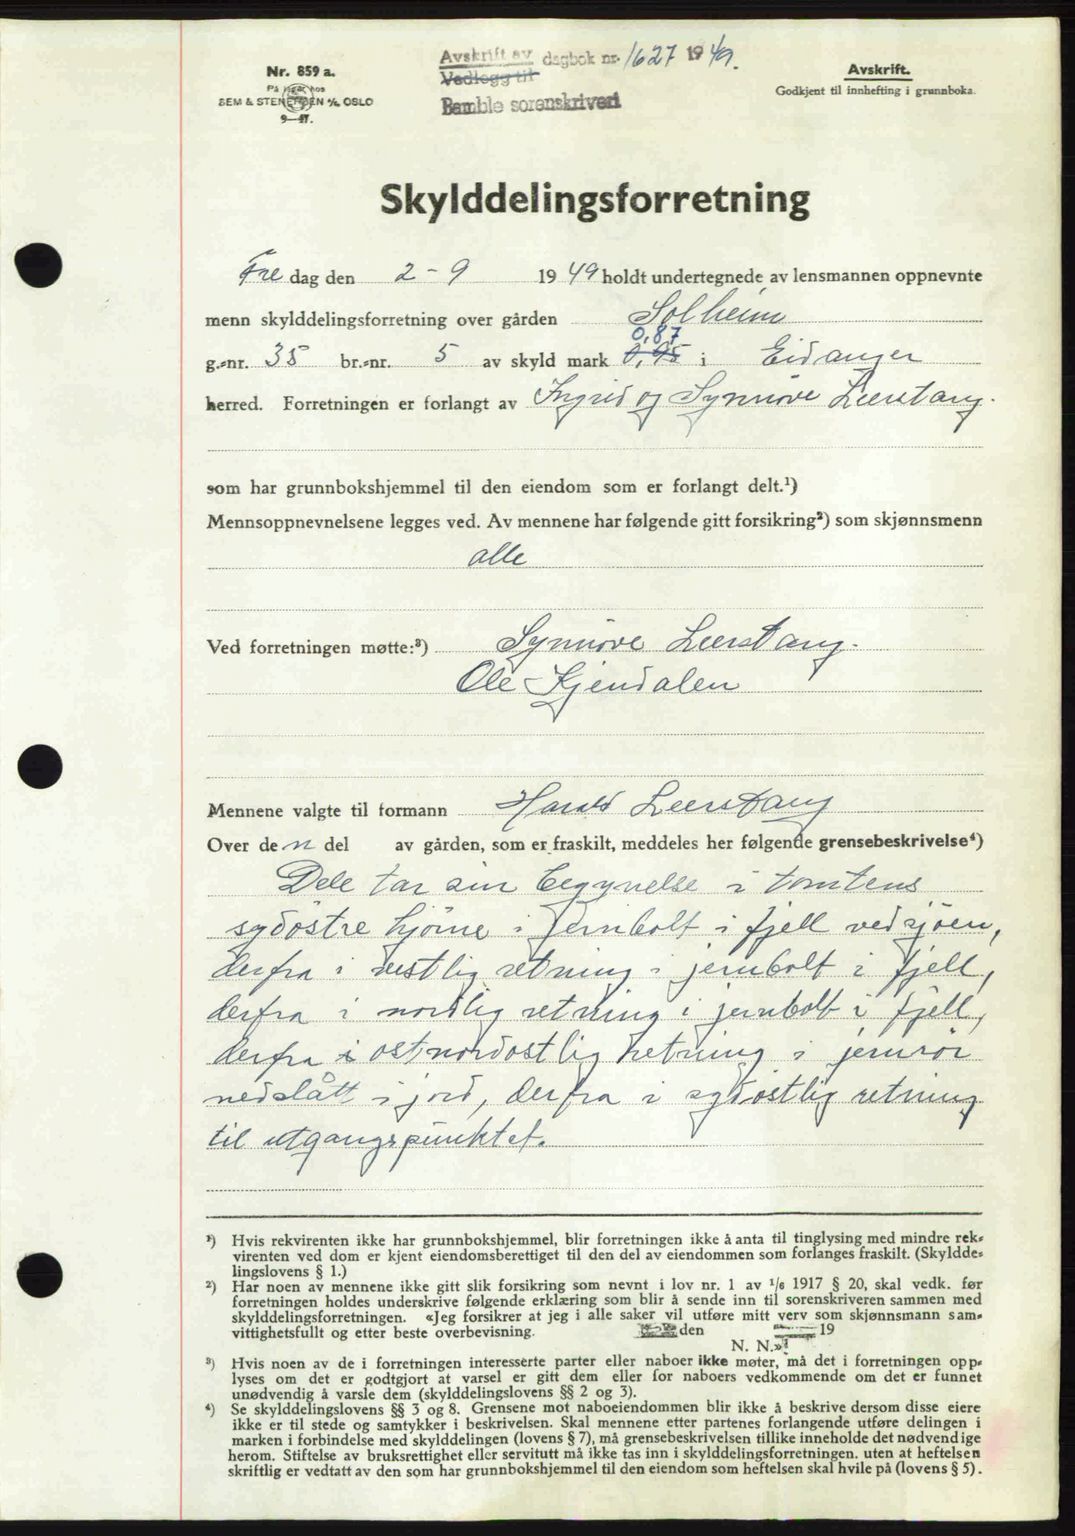 Avskrift av dagbok nr. 1627 1949.
Vedlegg til
Bamble sorenskriveri
Nr. 859 a.
På lager hos
SEM & STENERSEN A/S OSLO
9—47.
Avskrift.
Godkjent til innhefting i grunnboka.
Skylddelingsforretning
Fre dag den 2-9 1949 holdt undertegnede av lensmannen oppnevnte
menn skylddelingsforretning over gården Solheim
0,87
g.-nr. 35 br.-nr. 5 av skyld mark 0,95 i Eidanger
herred. Forretningen er forlangt av Ingrid og Synnöve Leerstang.
som har grunnbokshjemmel til den eiendom som er forlangt delt.¹)
Mennsoppnevnelsene legges ved. Av mennene har følgende gitt forsikring²) som skjønnsmenn
alle
Ved forretningen møtte:³) Synnöve Leerstang.
Ole Kjendalen
Mennene valgte til formann Harald Leerstang
Over den del av gården, som er fraskilt, meddeles her følgende grensebeskrivelse⁴)
Dele tar sin begynelse i tomtens
sydöstre hjörne i jernbolt i fjell ved sjöen,
derfra i vestlig retning i jernbolt i fjell,
derfra i nordlig retning i jernbolt i fjell,
derfra i ostnordostlig retning i jernrör
nedslått i jord, derfra i sydöstlig retning
til utgangspunktet.
¹) Hvis rekvirenten ikke har grunnbokshjemmel, blir forretningen ikke å anta til tinglysing med mindre rek-
virenten ved dom er kjent eiendomsberettiget til den del av eiendommen som forlanges fraskilt. (Skyldde-
lingslovens § 1.)
²) Har noen av mennene ikke gitt slik forsikring som nevnt i lov nr. 1 av 1/6 1917 § 20, skal vedk. før
forretningen holdes underskrive følgende erklæring som blir å sende inn til sorenskriveren sammen med
skylddelingsforretningen. «Jeg forsikrer at jeg i alle saker vil utføre mitt verv som skjønnsmann sam-
vittighetsfullt og etter beste overbevisning. den 19
N. N.»
³) Hvis noen av de i forretningen interesserte parter eller naboer ikke møter, må det i forretningen opp-
lyses om det er godtgjort at varsel er gitt dem eller for naboers vedkommende om det er funnet
unødvendig å varsle dem (skylddelingslovens §§ 2 og 3).
⁴) Se skylddelingslovens §§ 3 og 8. Grensene mot naboeiendommen blir ikke å beskrive dersom disse eiere
ikke er til stede og samtykker i beskrivelsen. Skal mennene etter partenes forlangende utføre delingen i
marken i forbindelse med skylddelingen (lovens § 7), må grensebeskrivelsen tillike inneholde det nødvendige
herom. Stiftelse av bruksrettighet eller servitutt må ikke tas inn i skylddelingsforretningen, uten at heftelsen
skriftlig er vedtatt av den som har grunnbokshjemmel til den eiendom som heftelsen skal hvile på (lovens § 5).